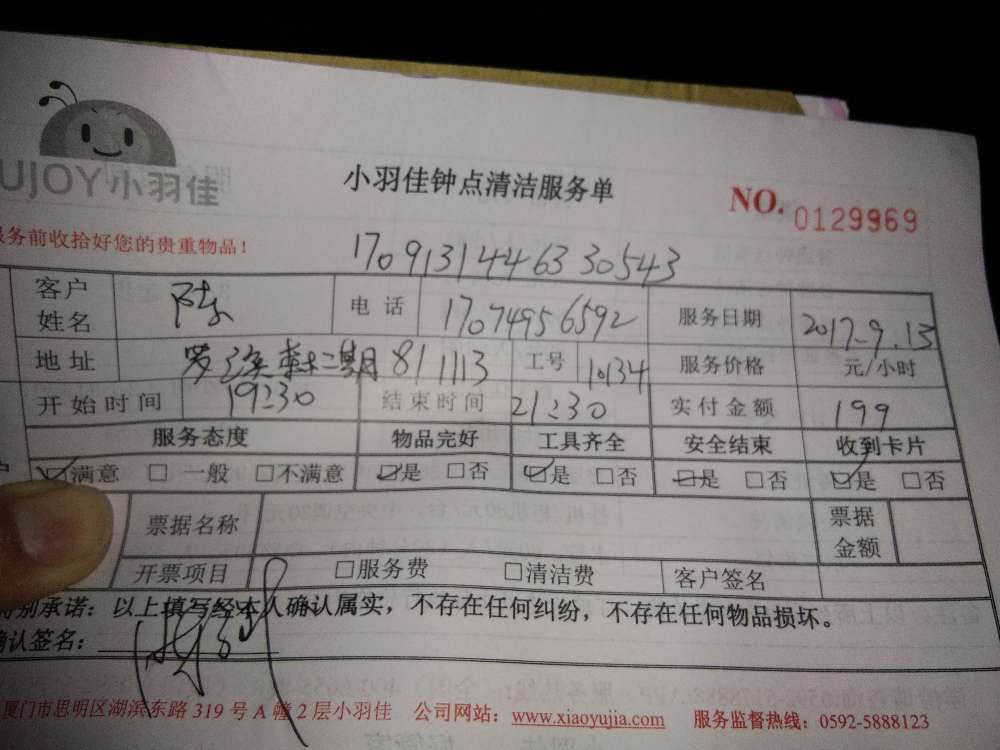 UJOY小羽佳
小羽佳钟点清洁服务单
NO. 0129969
服务前收拾好您的贵重物品！
1709131446330543
客户姓名 电话 17074956592 服务日期 2017.9.13
地址 二期 811113 工号 10134 服务价格 元/小时
开始时间 19:30 结束时间 21:30 实付金额 199
服务态度 物品完好 工具齐全 安全结束 收到卡片
☑满意 □一般 □不满意 ☑是 □否 ☑是 □否 ☑是 □否 ☑是 □否
票据名称 票据金额
开票项目 □服务费 □清洁费 客户签名
特别承诺：以上填写经本人确认属实，不存在任何纠纷，不存在任何物品损坏。
确认签名：
厦门市思明区湖滨东路 319 号 A 幢 2 层小羽佳 公司网站：www.xiaoyujia.com 服务监督热线：0592-5888123